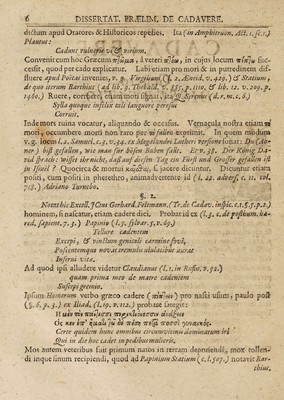 6 DISSERTAT. PRÆLIM. DE CADAVERE.
dictum apud Oratores & Historicos repetes. Ita (in Amphitruon. Act. 1. sc. 1.)
Plautus:
Cadunt vulneris vi & virium.
Convenit cum hoc Græcum πτῶμα, à veteri πέτω, in cujus locum πίπτω suc-
cessit, quod per cado explicatur. Labi etiam pro mori & in putredinem dif-
fluere apud Poëtas invenies, v. g. Virgilium (l. 2. Æneid. v. 429.) & Statium,
de quo iterum Barthius (ad lib. 9. Thebaid. v. 555. p. 1110. & lib. 12. v. 209. p.
1460.) Ruere, corruere, etiam mori signat, (d. r. m. c. 6.)
Sylla quoque infelix tali languore peresus
Corruit.
Inde mors ruina vocatur, aliquando & occasus. Vernacula nostra etiam
mori, occumbere morti non raro per fallen exprimit. In quem modum
v. g. locum 1. 2. Samuel. c. 3. v. 34. ex Megalandri Lutheri versione lotat: Du (Ab-
ner) bist gefallen, wie man für bösen Buben fällt. & v. 38. Der König Da-
vid sprach: wisset ihr nicht, daß auf diesen Tag ein Fürst und Grosser gefallen ist
in Israel? Quocirca & mortui jacere dicuntur. Dicuntur etiam
positi, cum positi in pheretro, animadvertente id (l. 22. advers. c. 11. col.
715.) Adriano Turnebo.
§. 2.
Note hic Excell. JCtus Gerhard. Feltmann. (Tr. de Cadav. inspic. c. 1. S. 5. p. 2.)
hominem, si nascatur, etiam cadere dici. Probat id ex (l. 3. c. de posthum. ha-
red. sapient. 7. 3.) Papinio (l. 5. sylvar. 5. v. 69.)
Tellure cadentem
Excepi, & vinctum genitali carmine fovi,
Poscentemque novas tremulis ululatibus auras
Inserui vitæ.
Ad quod ipsi alludere videtur Claudianus (l. 1. in Rufin. v. 92.)
quam prima meo de matre cadentem
Suscepi gremio.
Ipsum Homerum verbo græco cadere (πίπτειν) pro nasci usum, paulo post
(§. 6. p. 3.) ex Iliad. (l. 19. v. 112.) probat integit:
Ὃς κεν ἐπ' ἤματι τῷδε πέσῃ μετὰ ποσσὶ γυναικός.
Certe quidem hunc omnibus circumvicinis dominaturum
Qui in die hoc cadet in pedibus mulieris.
Mos autem veteribus fuit primum natos in terram deponendi, mox tollen-
di inque sinum recipiendi, quod ad Papinium Statium (c. 1507.) notavit Bar-
thius,